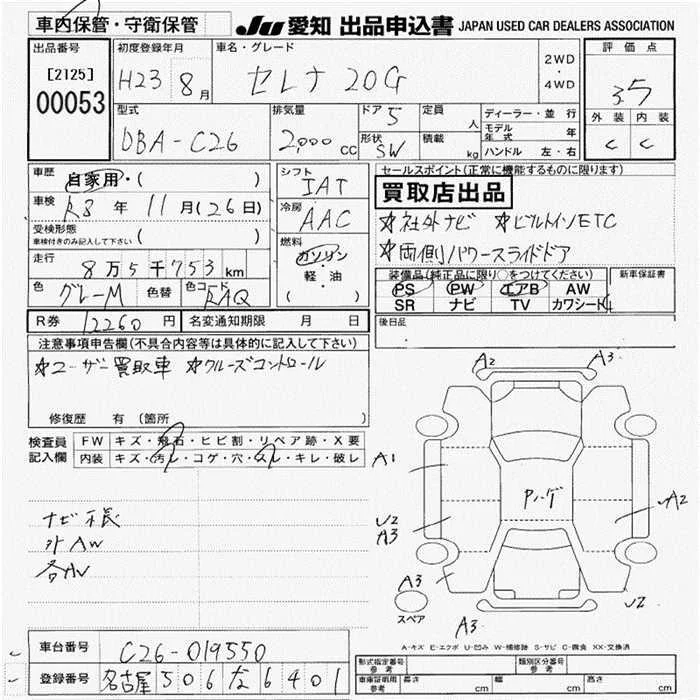 車内保管・守衛保管
JU 愛知 出品申込書 JAPAN USED CAR DEALERS ASSOCIATION
出品番号 初度登録年月 車名・グレード 2WD・4WD 評価点
[2125] 00053 H23 8月 セレナ 20G 3.5
型式 排気量 ドア 5 定員 人 ディーラー・並行 外装 内装
DBA-C26 2,000cc 形状 SW 積載 kg モデル年式 年 C C
ハンドル 左・右
車歴 自家用・( ) シフト IAT セールスポイント(正常に機能するものに限ります)
買取店出品
車検 R8年 11月(26日) 冷房 AAC ☆社外ナビ ☆ビルトインETC
受検形態 車検付きのみ記入して下さい ( ) 燃料 ガソリン・軽・油 ( ) ☆両側パワースライドドア
走行 8万5千753km 装備品(純正品に限り○をつけてください) 新車保証書
色 グレーM 色替 色コード KAQ PS PW エアB AW
SR ナビ TV カワシート
R券 12260円 名変通知期限 月 日 後日品
注意事項申告欄(不具合内容等は具体的に記入して下さい)
☆ユーザー買取車 ☆クルーズコントロール
修復歴 有 (箇所 )
検査員記入欄 FW キズ・飛石・ヒビ割・リペア跡・X要
内装 キズ・汚レ・コゲ・穴・スレ・キレ・破レ
A2 A3
A1
Pハゲ
A2
U2
A3
ナビ様
外AW
A3
スペア
U2
A3
A-キズ E-エクボ U-凹み W-補修跡 S-サビ C-腐食 XX-交換済
車台番号 C26-019550
登録番号 名古屋 506 な 6401
形式指定番号 参考 類別区分番号 参考
車庫証明用 参考 長さ cm 幅 cm 高さ cm